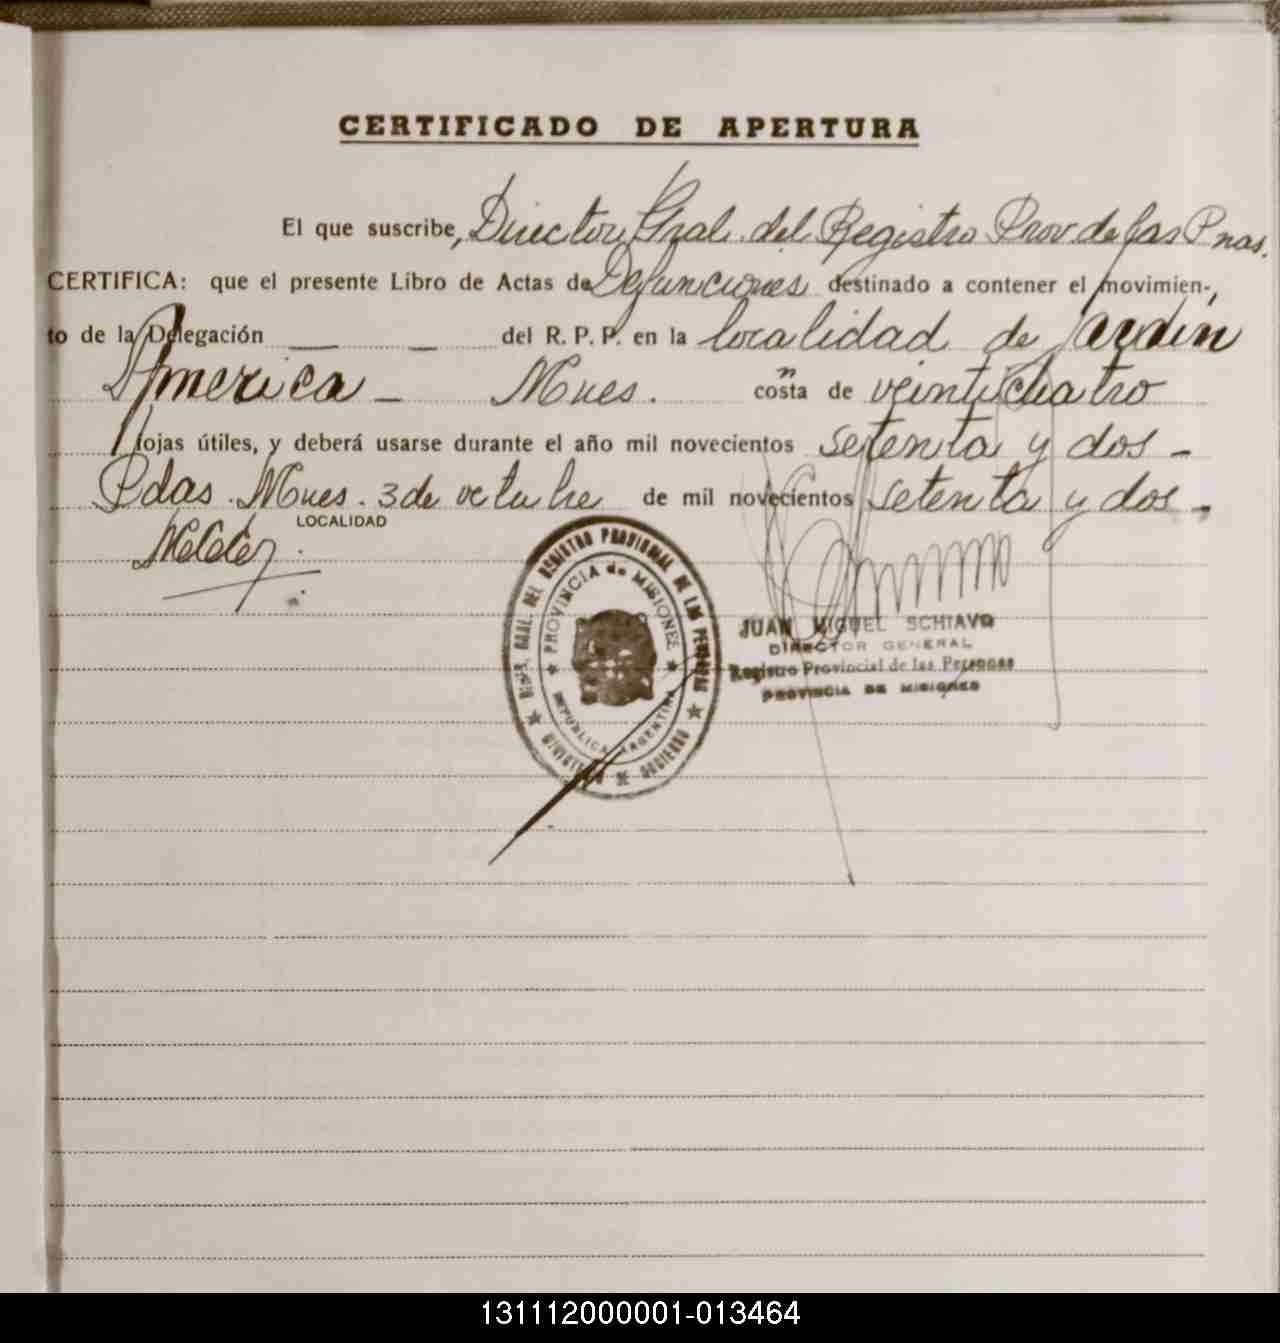 CERTIFICADO DE APERTURA
El que suscribe, Director Gral. del Registro Prov. de las Pnas.
CERTIFICA: que el presente Libro de Actas de Defunciones destinado a contener el movimien-
to de la Delegación — — del R. P. P. en la localidad de Jardin
America - Mnes. consta de veinticuatro
fojas útiles, y deberá usarse durante el año mil novecientos setenta y dos -
Pdas. Mnes. 3 de octubre de mil novecientos setenta y dos -
LOCALIDAD
DIRE. GRAL. DEL REGISTRO PROVINCIAL DE LAS PERSONAS
PROVINCIA de MISIONES
REPUBLICA ARGENTINA
MINISTERIO DE GOBIERNO
JUAN MIGUEL SCHIAVO
DIRECTOR GENERAL
Registro Provincial de las Personas
PROVINCIA DE MISIONES
131112000001-013464